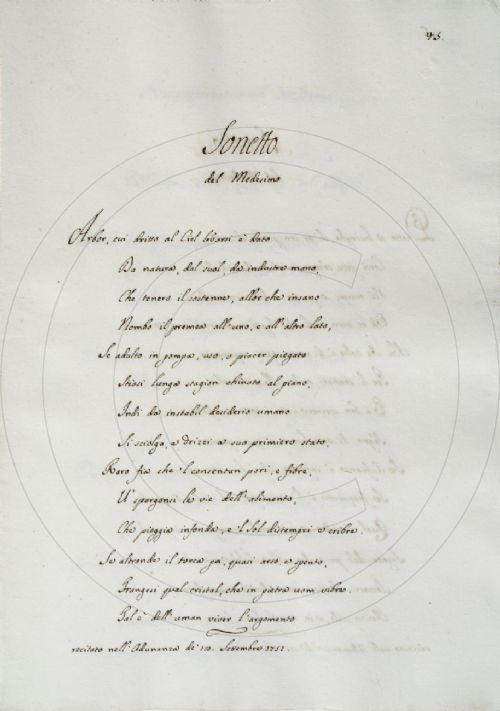 45.
Sonetto
del Medesimo
Arbor, cui dritto al Ciel levarsi è dato
Da natura, dal suol, da industre mano,
Che tenero il sostenne, allor che insano
Nembo il premea all'uno, e all'altro lato,
Se adulto in pompa, uso, o piacer piegato
Stiasi lunga stagion chinato al piano,
Indi da instabil desiderio umano
Si sciolga, e drizzi a suo primiero stato.
Raro fia che 'l consentan pori, e fibre,
U' sporgonsi le vie dell'alimento,
Che pioggia infonda, e 'l Sol distempri e cribre.
Se altronde il torca pa, quasi arso, e spento,
Frangesi qual cristal, che in pietra uom vibre.
Tal è dell'uman viver l'argomento
recitato nell'Adunanza de' Settembre 1751.